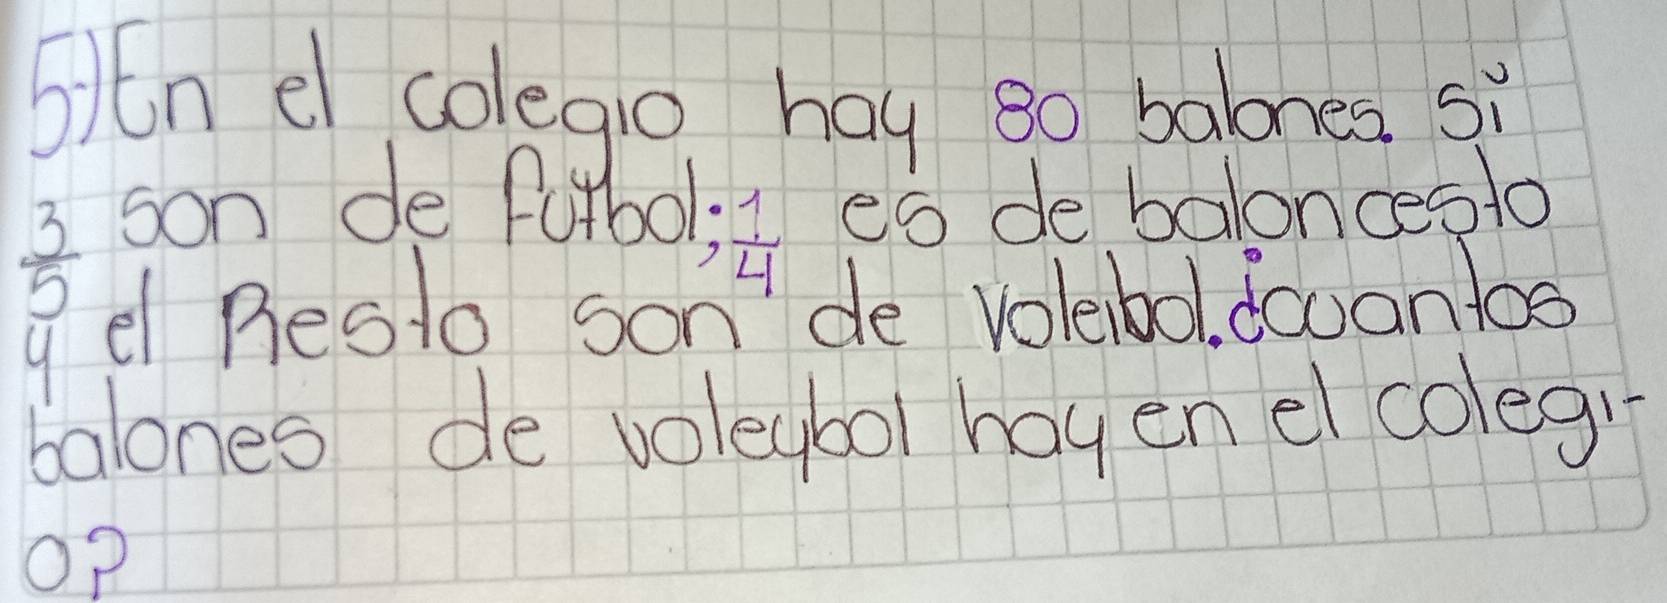 5.) En el colegio hay 80 balones. Si
3/5 son de futbol; 1/4 es de baloncesto
y el Resto son de voleibol. ¿cuantos
balones de voleybol hay en el colegi-
o?